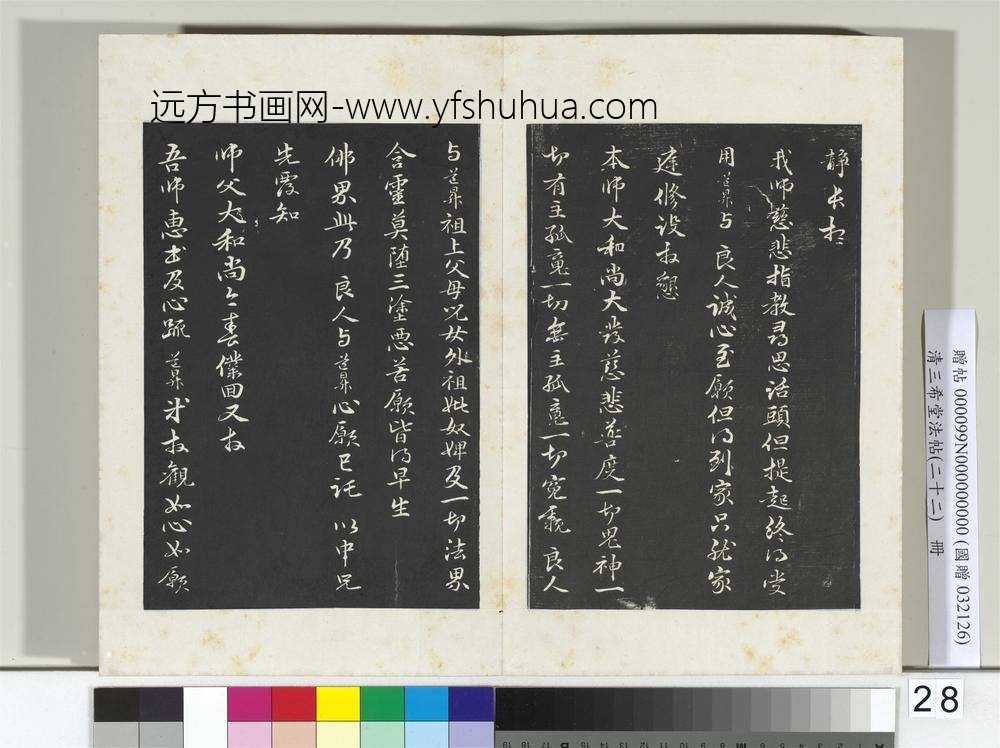 远方书画网-www.yfshuhua.com
我师慈悲指教尋思话頭但提起終得受
用道昇与 良人誠心至願但得到家只就家
庭修设拜懇
本师大和尚大发慈悲普度一切鬼神一
切有主孤魂一切無主孤魂一切冤 良人
与道昇祖上父母兄女外祖妣奴婢及一切法界
含靈莫墮三塗惡苦願皆得早生
佛界此乃 良人与道昇心願已託 以中兄
先覆知
师父大和尚今春僕回又拜
吾师惠书及心疏 道昇 拜觀如心如願
贈帖 000099N000000000 (國贈 032126)
清三希堂法帖(二十二) 冊
28